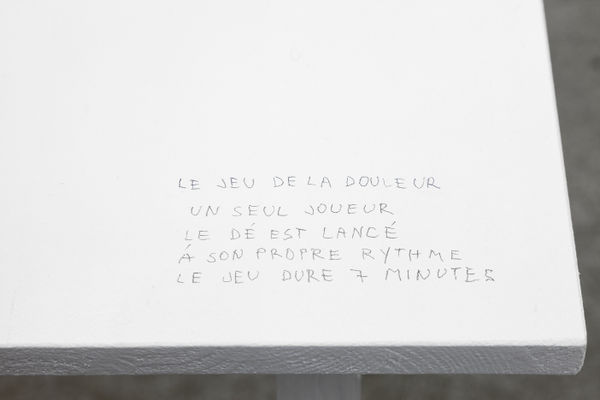 LE JEU DE LA DOULEUR
UN SEUL JOUEUR
LE DÉ EST LANCÉ
Á SON PROPRE RYTHME
LE JEU DURE 7 MINUTES